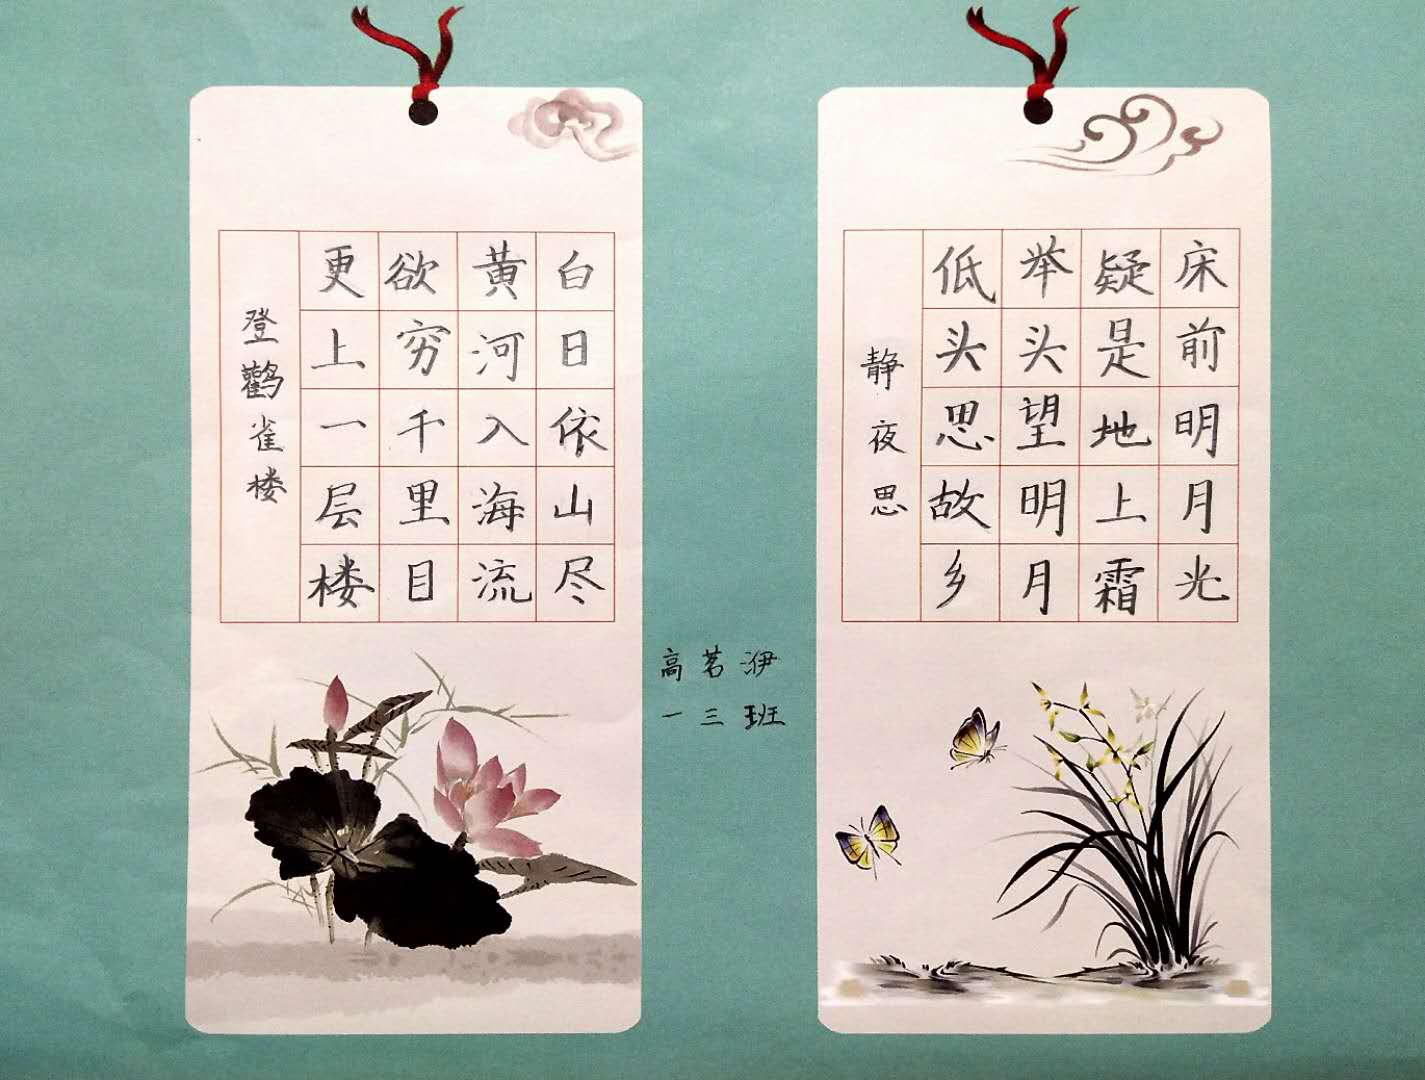 床前明月光
疑是地上霜
举头望明月
低头思故乡
静夜思
白日依山尽
黄河入海流
欲穷千里目
更上一层楼
登鹳雀楼
高茗洢
一三班